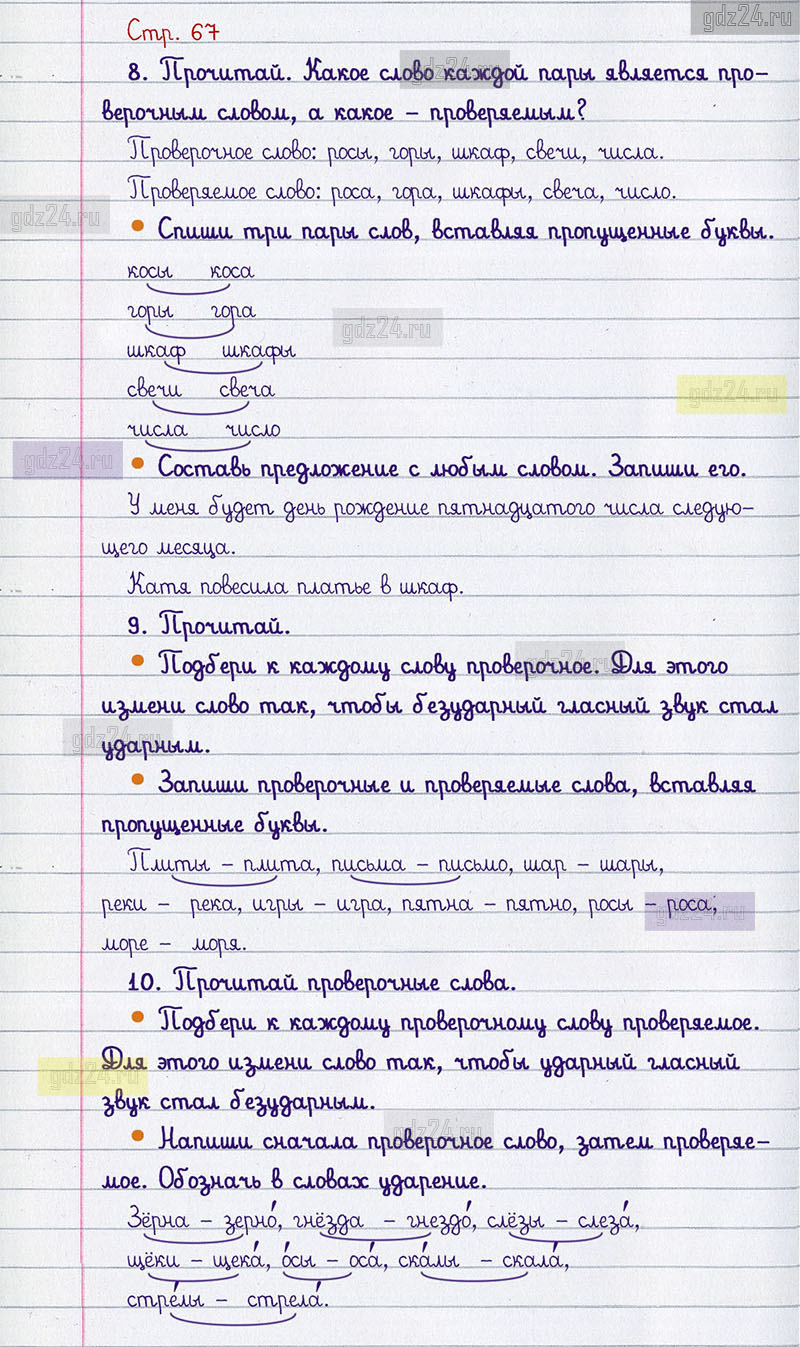 gdz24.ru
Стр. 67
8. Прочитай. Какое слово каждой пары является про-
gdz24.ru
верочным словом, а какое – проверяемым?
Проверочное слово: росы, горы, шкаф, свечи, числа.
Проверяемое слово: роса, гора, шкафы, свеча, число.
gdz24.ru
• Спиши три пары слов, вставляя пропущенные буквы.
косы коса
горы гора
gdz24.ru
шкаф шкафы
свечи свеча
gdz24.ru
числа число
gdz24.ru
• Составь предложение с любым словом. Запиши его.
У меня будет день рождение пятнадцатого числа следую-
щего месяца.
Катя повесила платье в шкаф.
9. Прочитай.
• Подбери к каждому слову проверочное. Для этого
gdz24.ru
измени слово так, чтобы безударный гласный звук стал
gdz24.ru
ударным.
• Запиши проверочные и проверяемые слова, вставляя
пропущенные буквы.
Плиты – плита, письма – письмо, шар – шары,
реки – река, игры – игра, пятна – пятно, росы – роса,
gdz24.ru
море – моря.
10. Прочитай проверочные слова.
• Подбери к каждому проверочному слову проверяемое.
Для этого измени слово так, чтобы ударный гласный
gdz24.ru
звук стал безударным.
gdz24.ru
• Напиши сначала проверочное слово, затем проверяе-
мое. Обозначь в словах ударение.
Зёрна – зерно́, гнёзда – гнездо́, слёзы – слеза́,
щёки – щека́, о́сы – оса́, ска́лы – скала́,
стре́лы – стрела́.